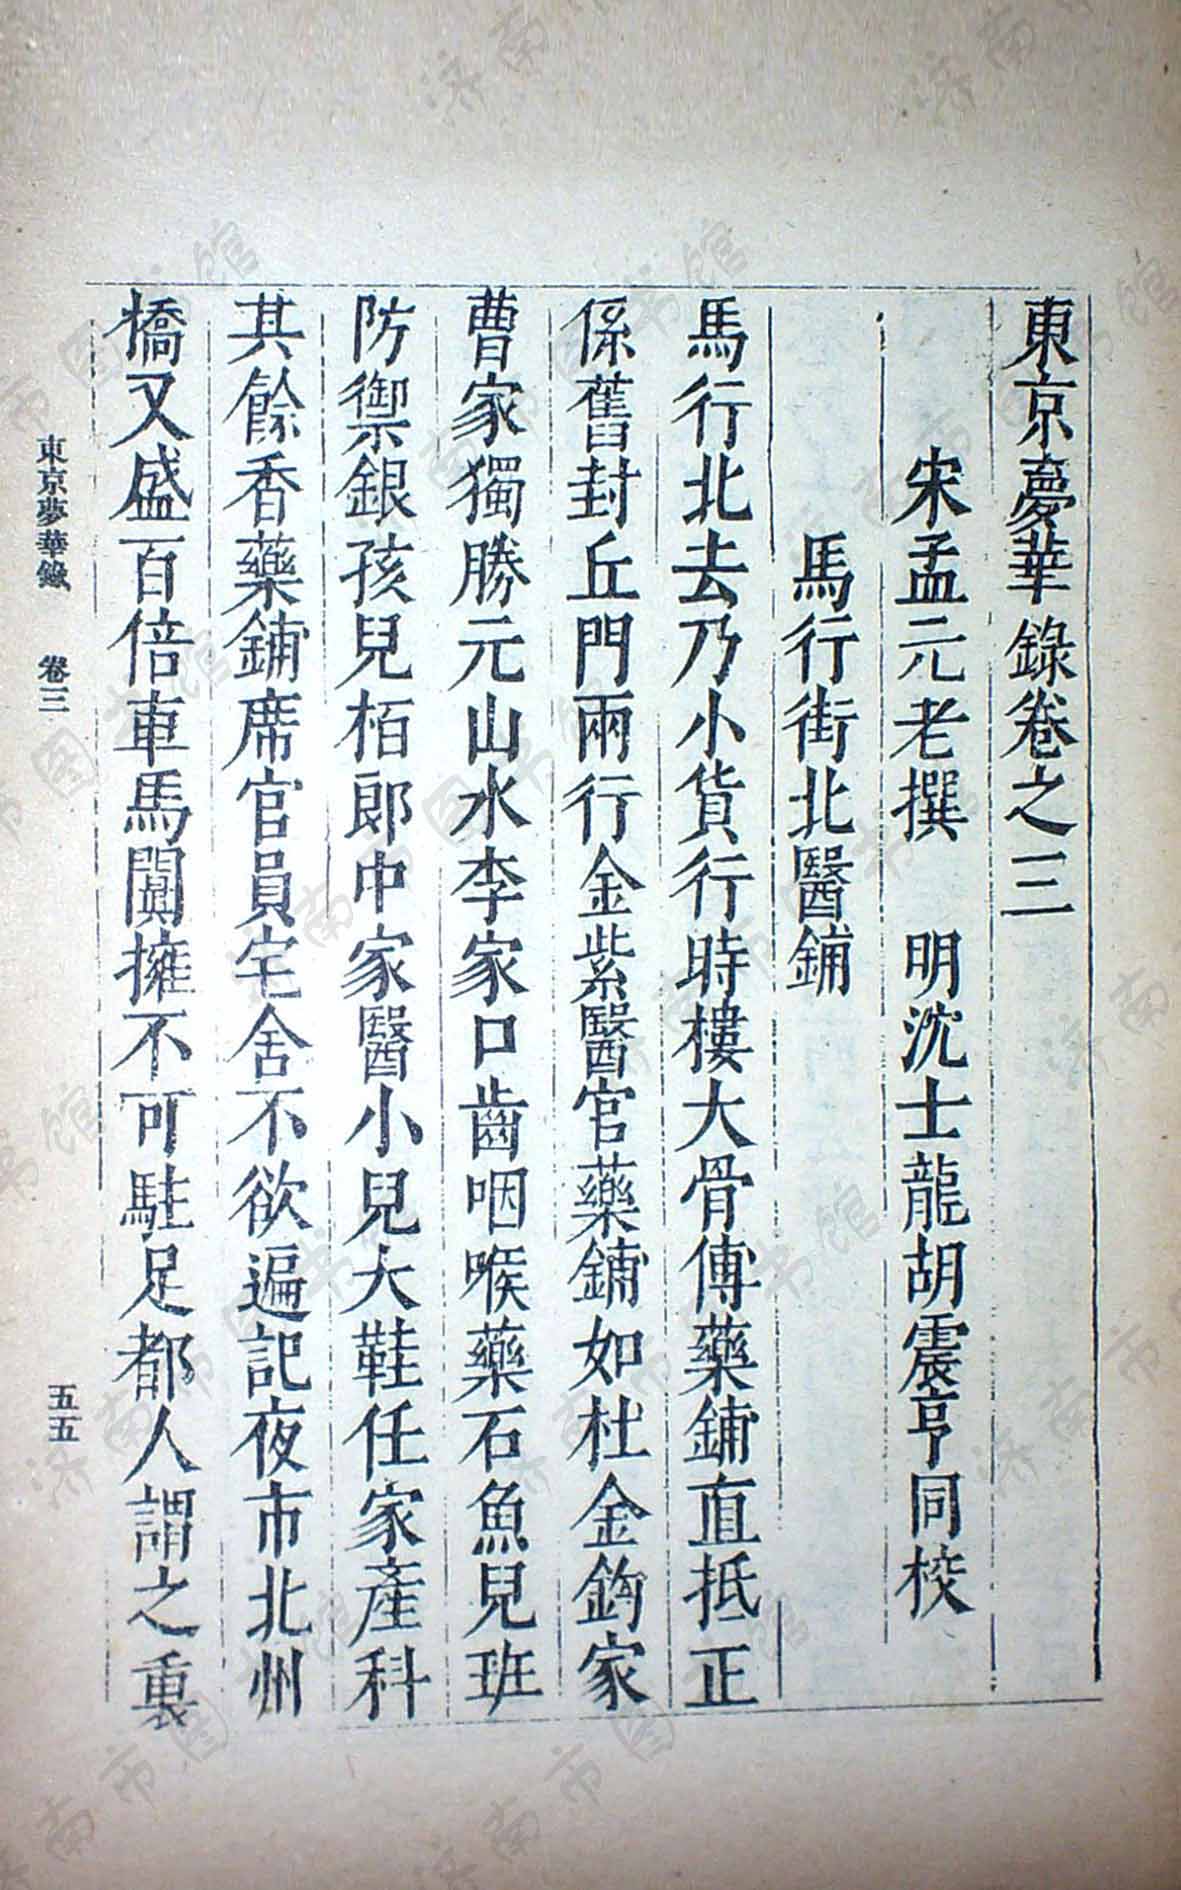 東京夢華錄卷之三
宋孟元老撰　明沈士龍胡震亨同校
馬行街北醫鋪
馬行北去乃小貨行時樓大骨傳藥鋪直抵正
係舊封丘門兩行金紫醫官藥鋪如杜金鈎家
曹家獨勝元山水李家口齒咽喉藥石魚兒班
防禦銀孩兒栢郎中家醫小兒大鞋任家產科
其餘香藥鋪席官員宅舍不欲遍記夜市北州
橋又盛百倍車馬闐擁不可駐足都人謂之裏
東京夢華錄　卷三
五五
济南市图书馆